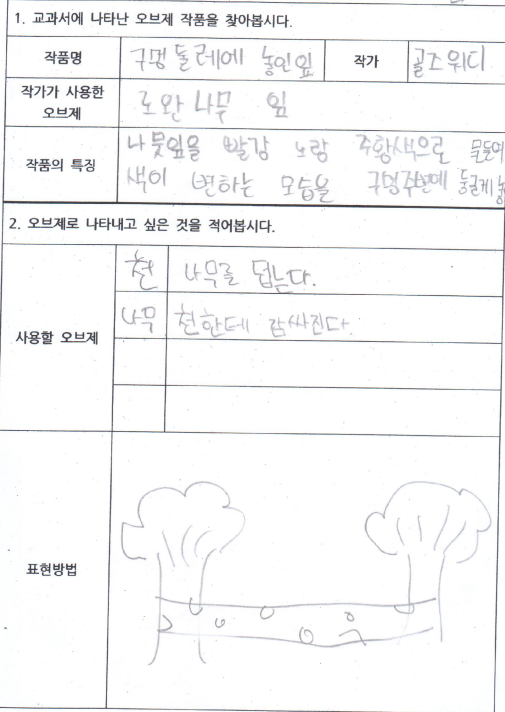 1. 교과서에 나타난 오브제 작품을 찾아봅시다.
작품명 구멍 둘레에 놓인 잎 작가 골즈워디
작가가 사용한 오브제 로완나무 잎
작품의 특징 나뭇잎을 빨강 노랑 주황색으로 물들여
색이 변하는 모습을 구멍주변에 둥글게
2. 오브제로 나타내고 싶은 것을 적어봅시다.
사용할 오브제
천 나무를 덥는다.
나무 천한테 감싸진다.
표현방법